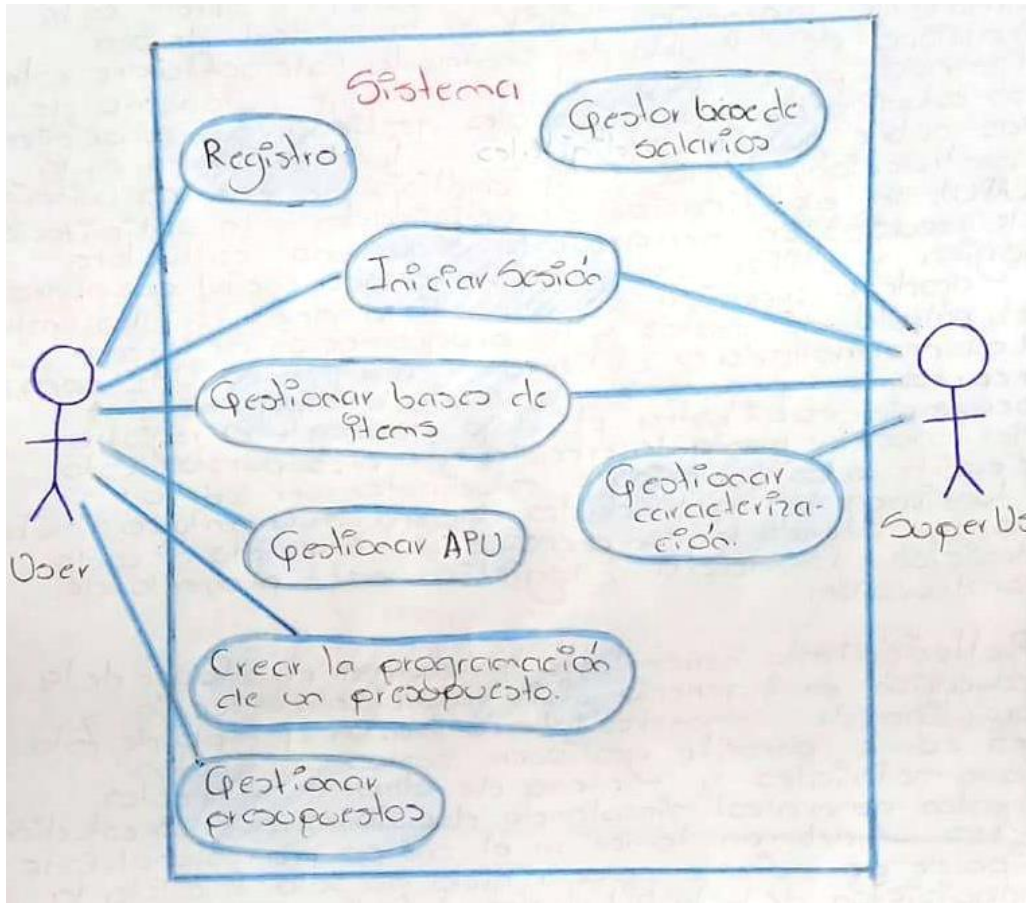 Sistema
Registro
Gestor base de
salarios
Iniciar Sesión
Gestionar bases de
items
Gestionar
caracteriza-
ción.
Gestionar APU
User
Super Us
Crear la programación
de un presupuesto.
Gestionar
presupuestos